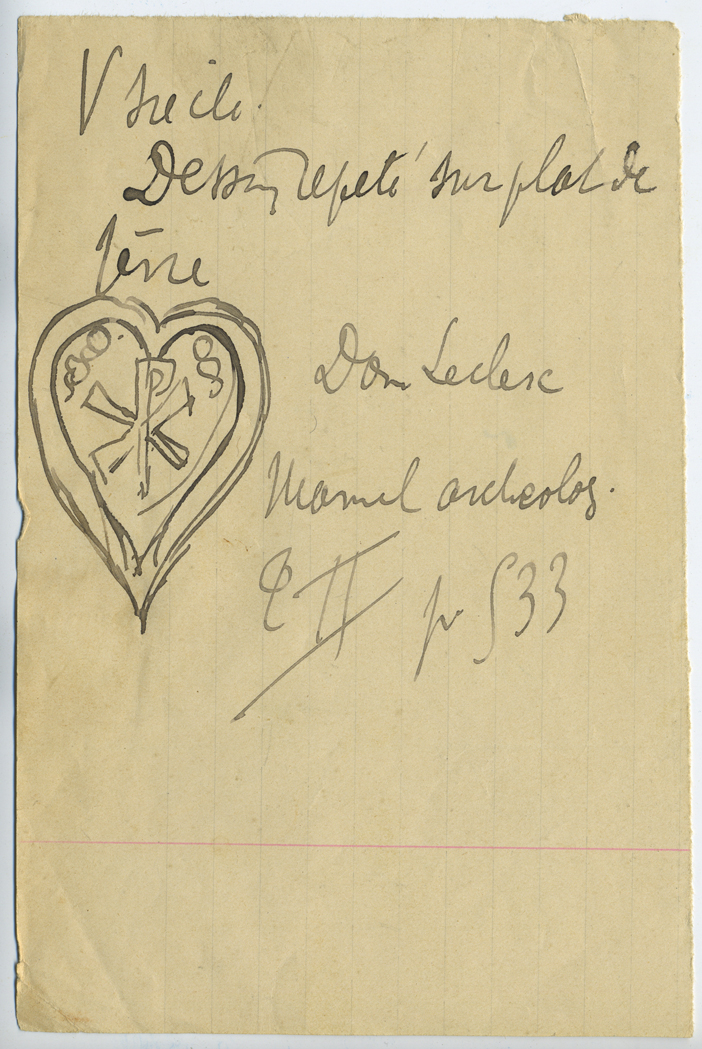 V siecle.
Dessin repeté sur plat de
terre
Dom Leclerc
Manuel archeolog.
t II p 533